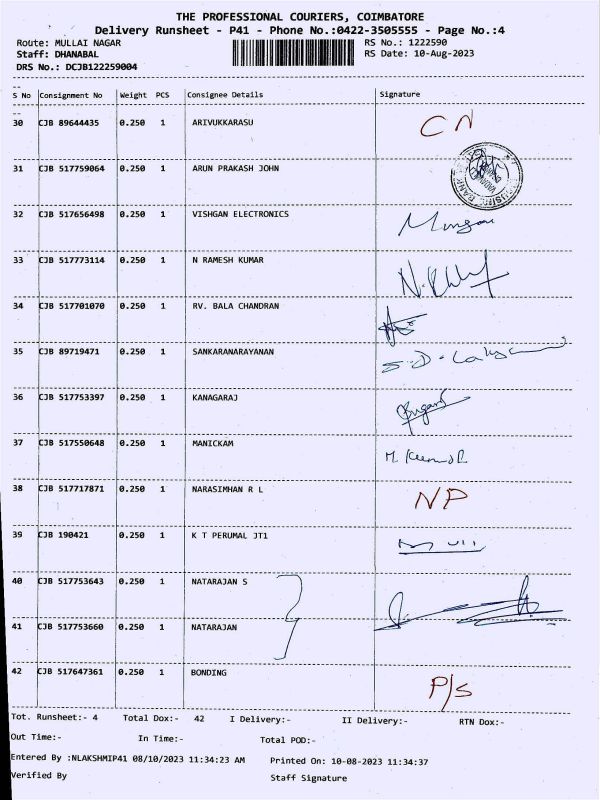 THE PROFESSIONAL COURIERS, COIMBATORE
Delivery Runsheet - P41 - Phone No.:0422-3505555 - Page No.:4
Route: MULLAI NAGAR RS No.: 1222590
Staff: DHANABAL RS Date: 10-Aug-2023
DRS No.: DCJB122259004
S No Consignment No Weight PCS Consignee Details Signature
30 CJB 89644435 0.250 1 ARIVUKKARASU CN
31 CJB 517759064 0.250 1 ARUN PRAKASH JOHN
32 CJB 517656498 0.250 1 VISHGAN ELECTRONICS
33 CJB 517773114 0.250 1 N RAMESH KUMAR
34 CJB 517701070 0.250 1 RV. BALA CHANDRAN
35 CJB 89719471 0.250 1 SANKARANARAYANAN
36 CJB 517753397 0.250 1 KANAGARAJ
37 CJB 517550648 0.250 1 MANICKAM
38 CJB 517717871 0.250 1 NARASIMHAN R L NP
39 CJB 190421 0.250 1 K T PERUMAL JT1
40 CJB 517753643 0.250 1 NATARAJAN S
41 CJB 517753660 0.250 1 NATARAJAN
42 CJB 517647361 0.250 1 BONDING P/S
Tot. Runsheet:- 4 Total Dox:- 42 I Delivery:- II Delivery:- RTN Dox:-
Out Time:- In Time:- Total POD:-
Entered By :NLAKSHMIP41 08/10/2023 11:34:23 AM Printed On: 10-08-2023 11:34:37
Verified By Staff Signature